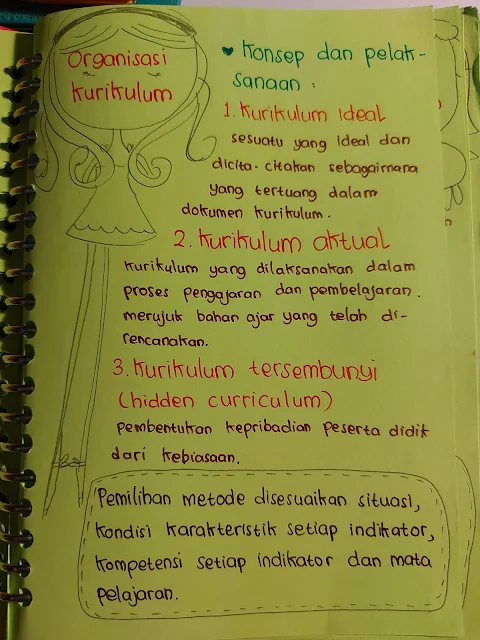 Organisasi
Kurikulum
♥ Konsep dan pelak-
sanaan :
1. Kurikulum ideal
sesuatu yang ideal dan
dicita-citakan sebagaimana
yang tertuang dalam
dokumen kurikulum.
2. Kurikulum aktual
Kurikulum yang dilaksanakan dalam
proses pengajaran dan pembelajaran.
merujuk bahan ajar yang telah di-
rencanakan.
3. Kurikulum tersembunyi
(hidden curriculum)
Pembentukan kepribadian peserta didik
dari kebiasaan.
Pemilihan metode disesuaikan situasi,
kondisi karakteristik setiap indikator,
kompetensi setiap indikator dan mata
pelajaran.